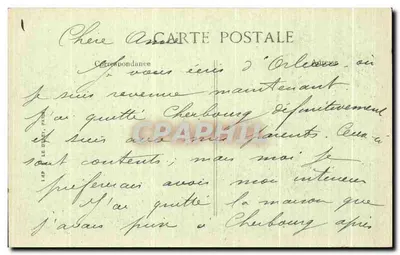 CARTE POSTALE
Correspondance
Chère Amie
Je vous écris d'Orléans où
je suis revenue maintenant
J'ai quitté Cherbourg définitivement
et suis avec mes parents. Ceux-ci
sont contents; mais moi je
préfèrerais avoir mon intérieur
J'ai quitté la maison que
j'avais prise à Cherbourg après